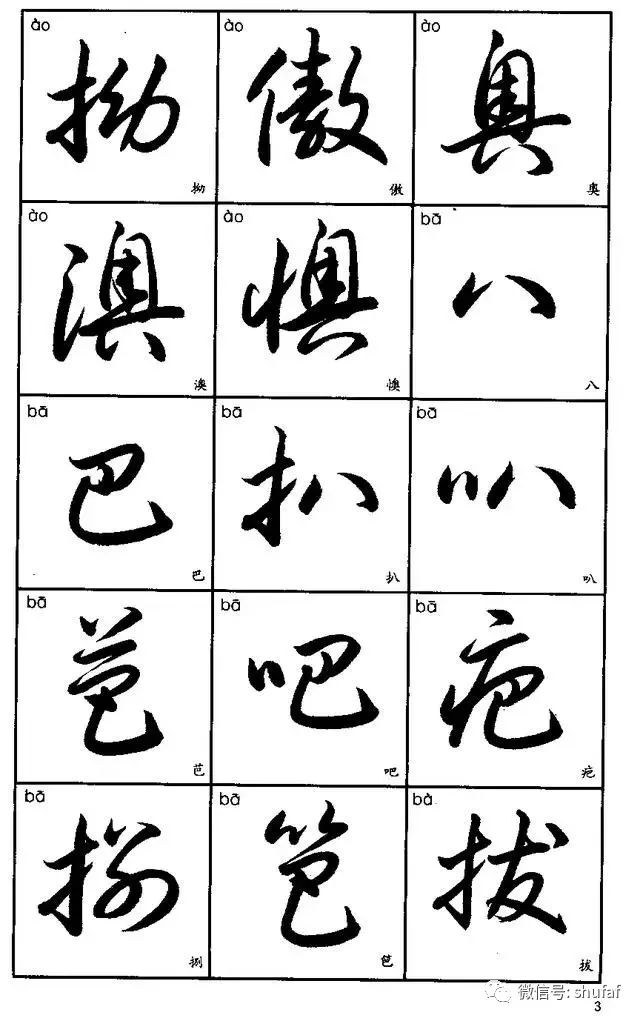 ào ào ào
拗 傲 奥
拗 傲 奥
ào ào bā
澳 懊 八
澳 懊 八
bā bā bā
巴 扒 叭
巴 扒 叭
bā bā bā
芭 吧 疤
芭 吧 疤
bā bā bá
捌 笆 拔
捌 笆 拔
微信号: shufaf
3